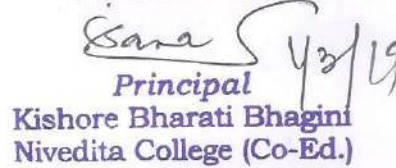 Principal
Kishore Bharati Bhagini
Nivedita College (Co-Ed.)